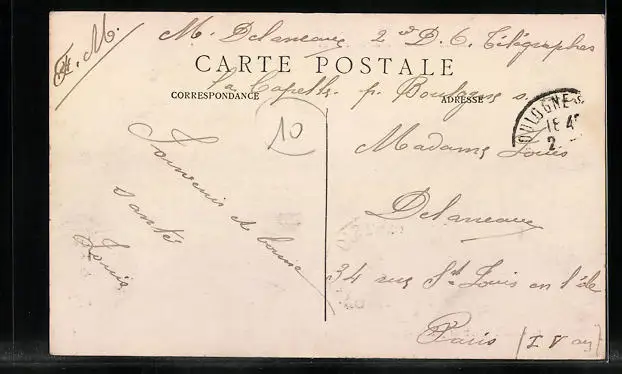 F. M.
M. Delaneau 2e D. C. Télégraphes
CARTE POSTALE
La Capelle p. Boulogne s.
CORRESPONDANCE
ADRESSE
OULOGNE-S
18 4
2
10
Souvenir de bonne
santé
Louis
Madame Louis
Delaneau
34 rue St Louis en l'île
Paris (IV arr)